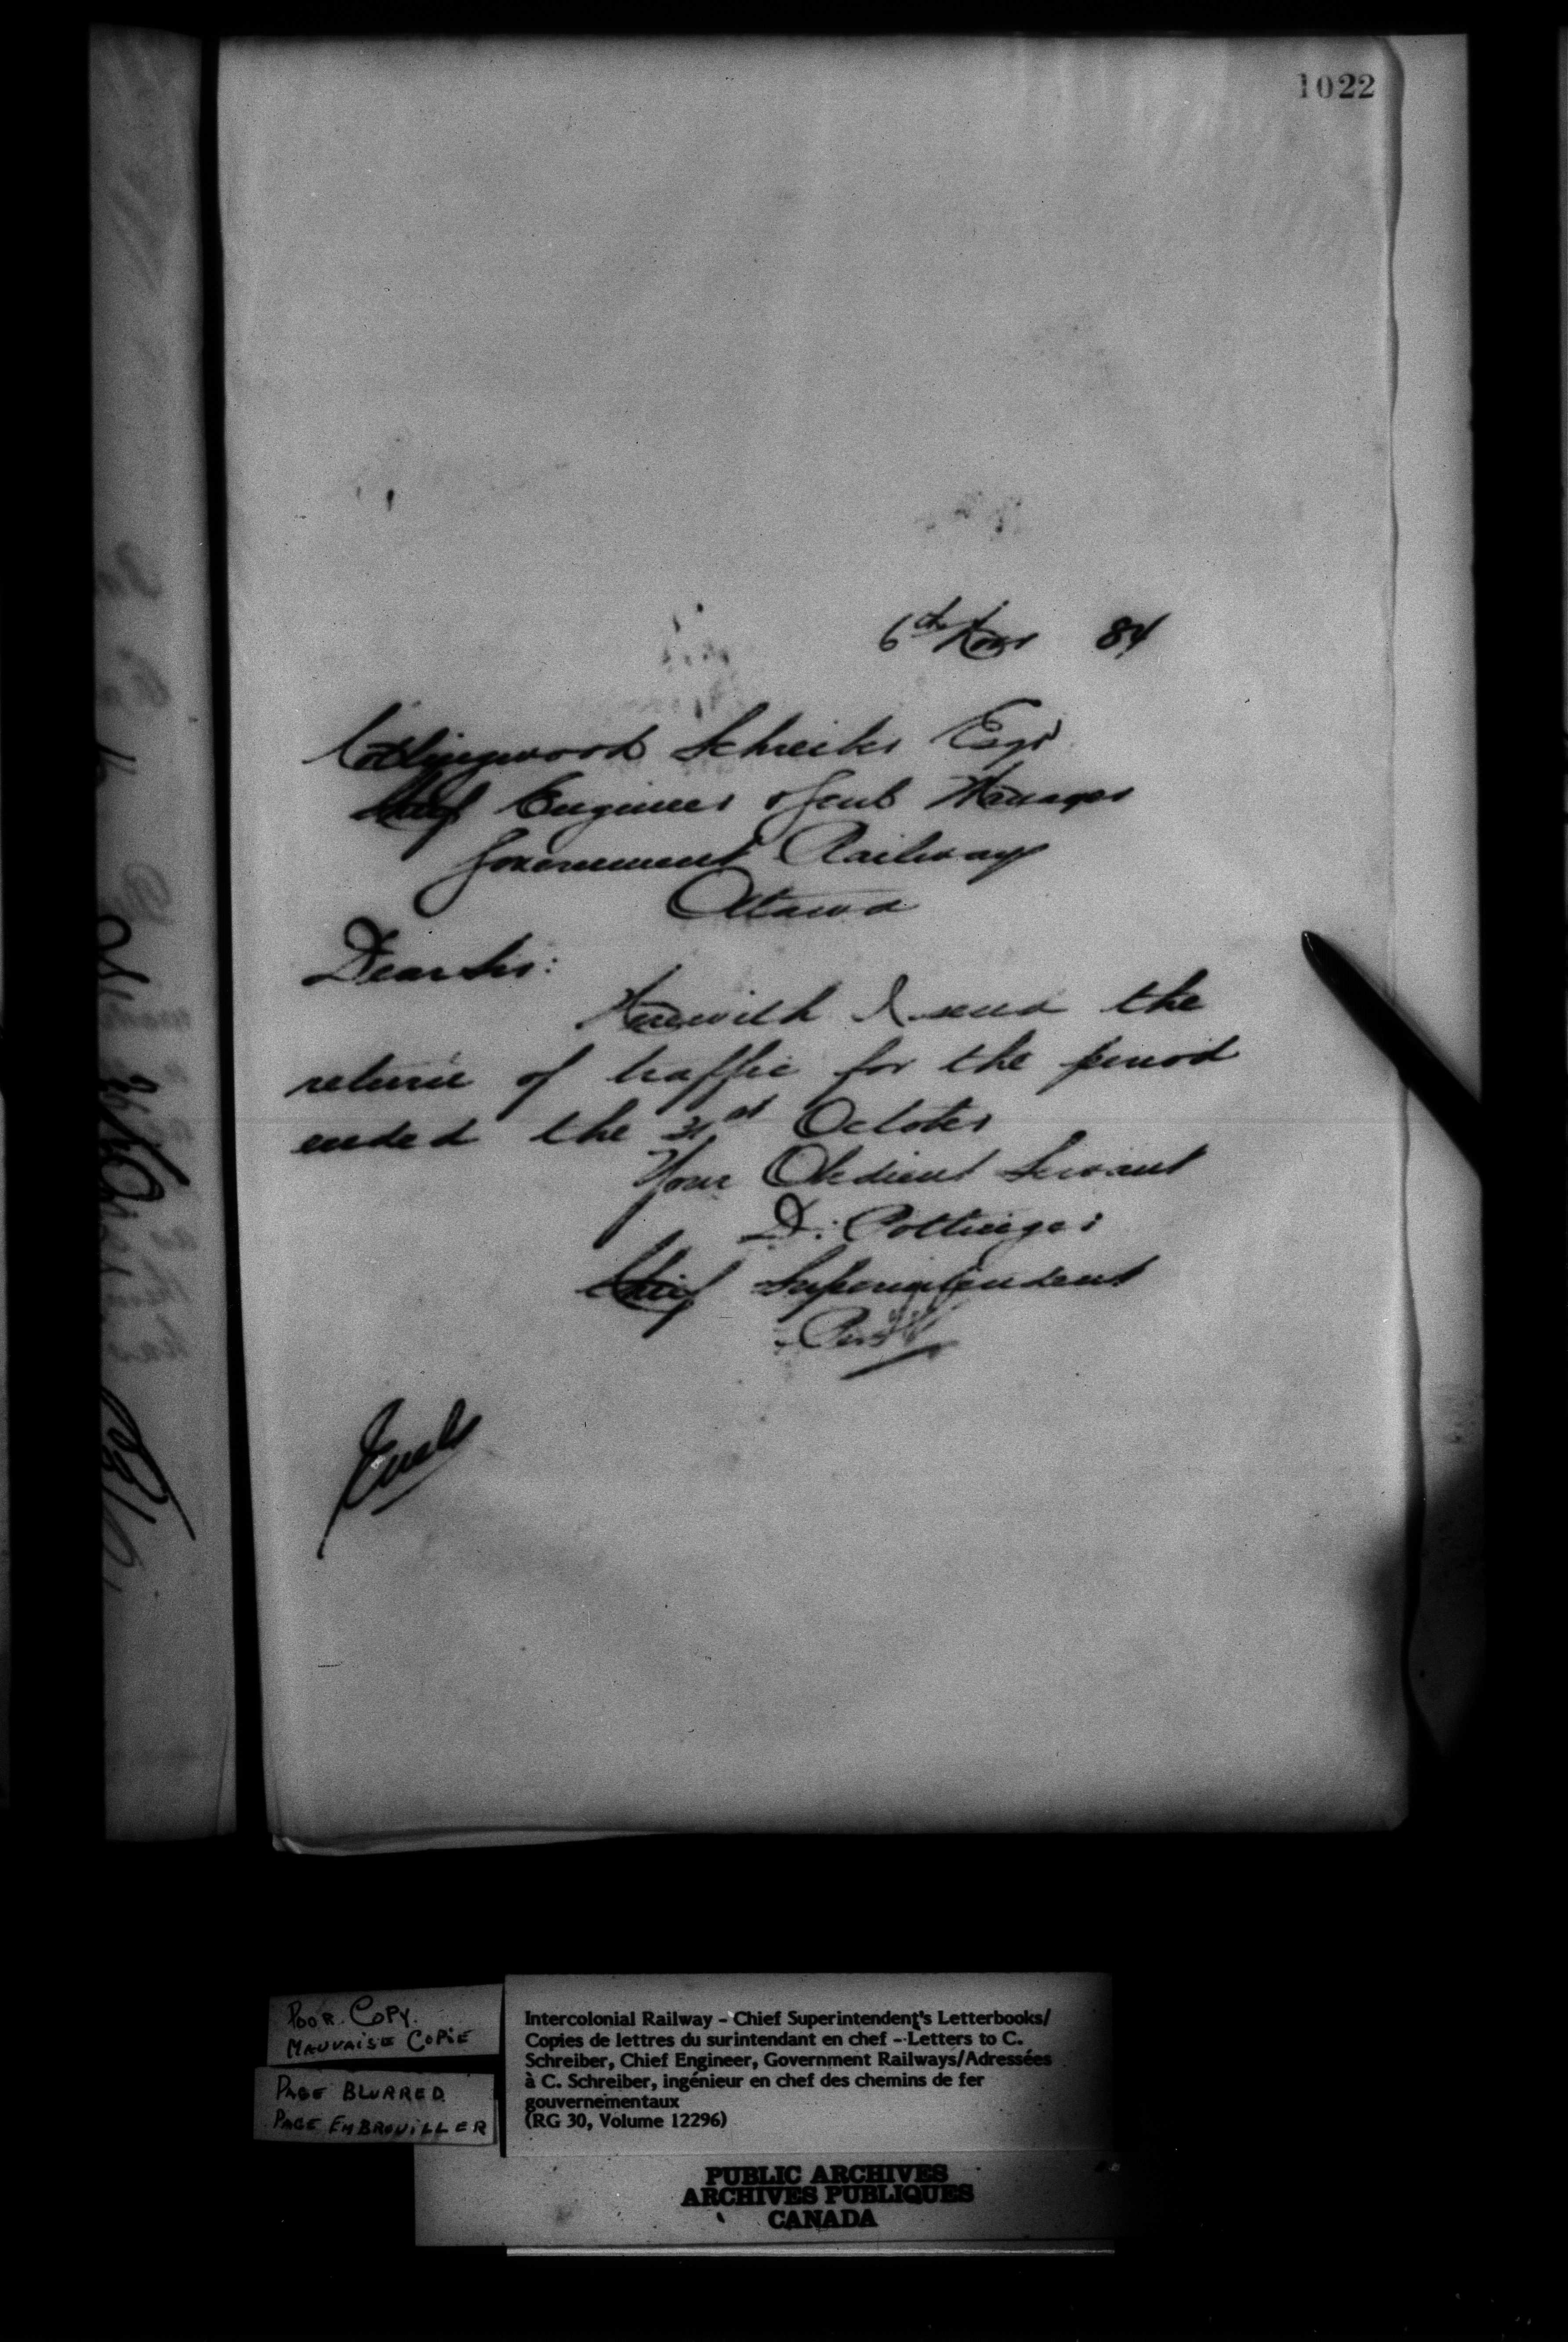 1022
6th Novr 84
Collingwood Schreiber Esqr
Chief Engineer & Genl Manager
Government Railway
Ottawa
Dear Sir:
Herewith I send the
return of traffic for the period
ended the 31st October
Your Obedient Servant
D. Pottinger
Chief Superintendent
Encls
POOR COPY.
MAUVAISE COPIE
PAGE BLURRED
PAGE EMBROUILLER
Intercolonial Railway – Chief Superintendent's Letterbooks/
Copies de lettres du surintendant en chef – Letters to C.
Schreiber, Chief Engineer, Government Railways/Adressées
à C. Schreiber, ingénieur en chef des chemins de fer
gouvernementaux
(RG 30, Volume 12296)
PUBLIC ARCHIVES
ARCHIVES PUBLIQUES
CANADA